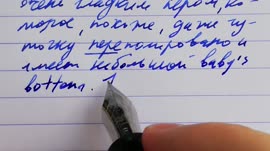 очень гладким пером, ко-
торое, похоже, даже чу-
точку переполировано и
имеет небольшой baby's
bottom. 1